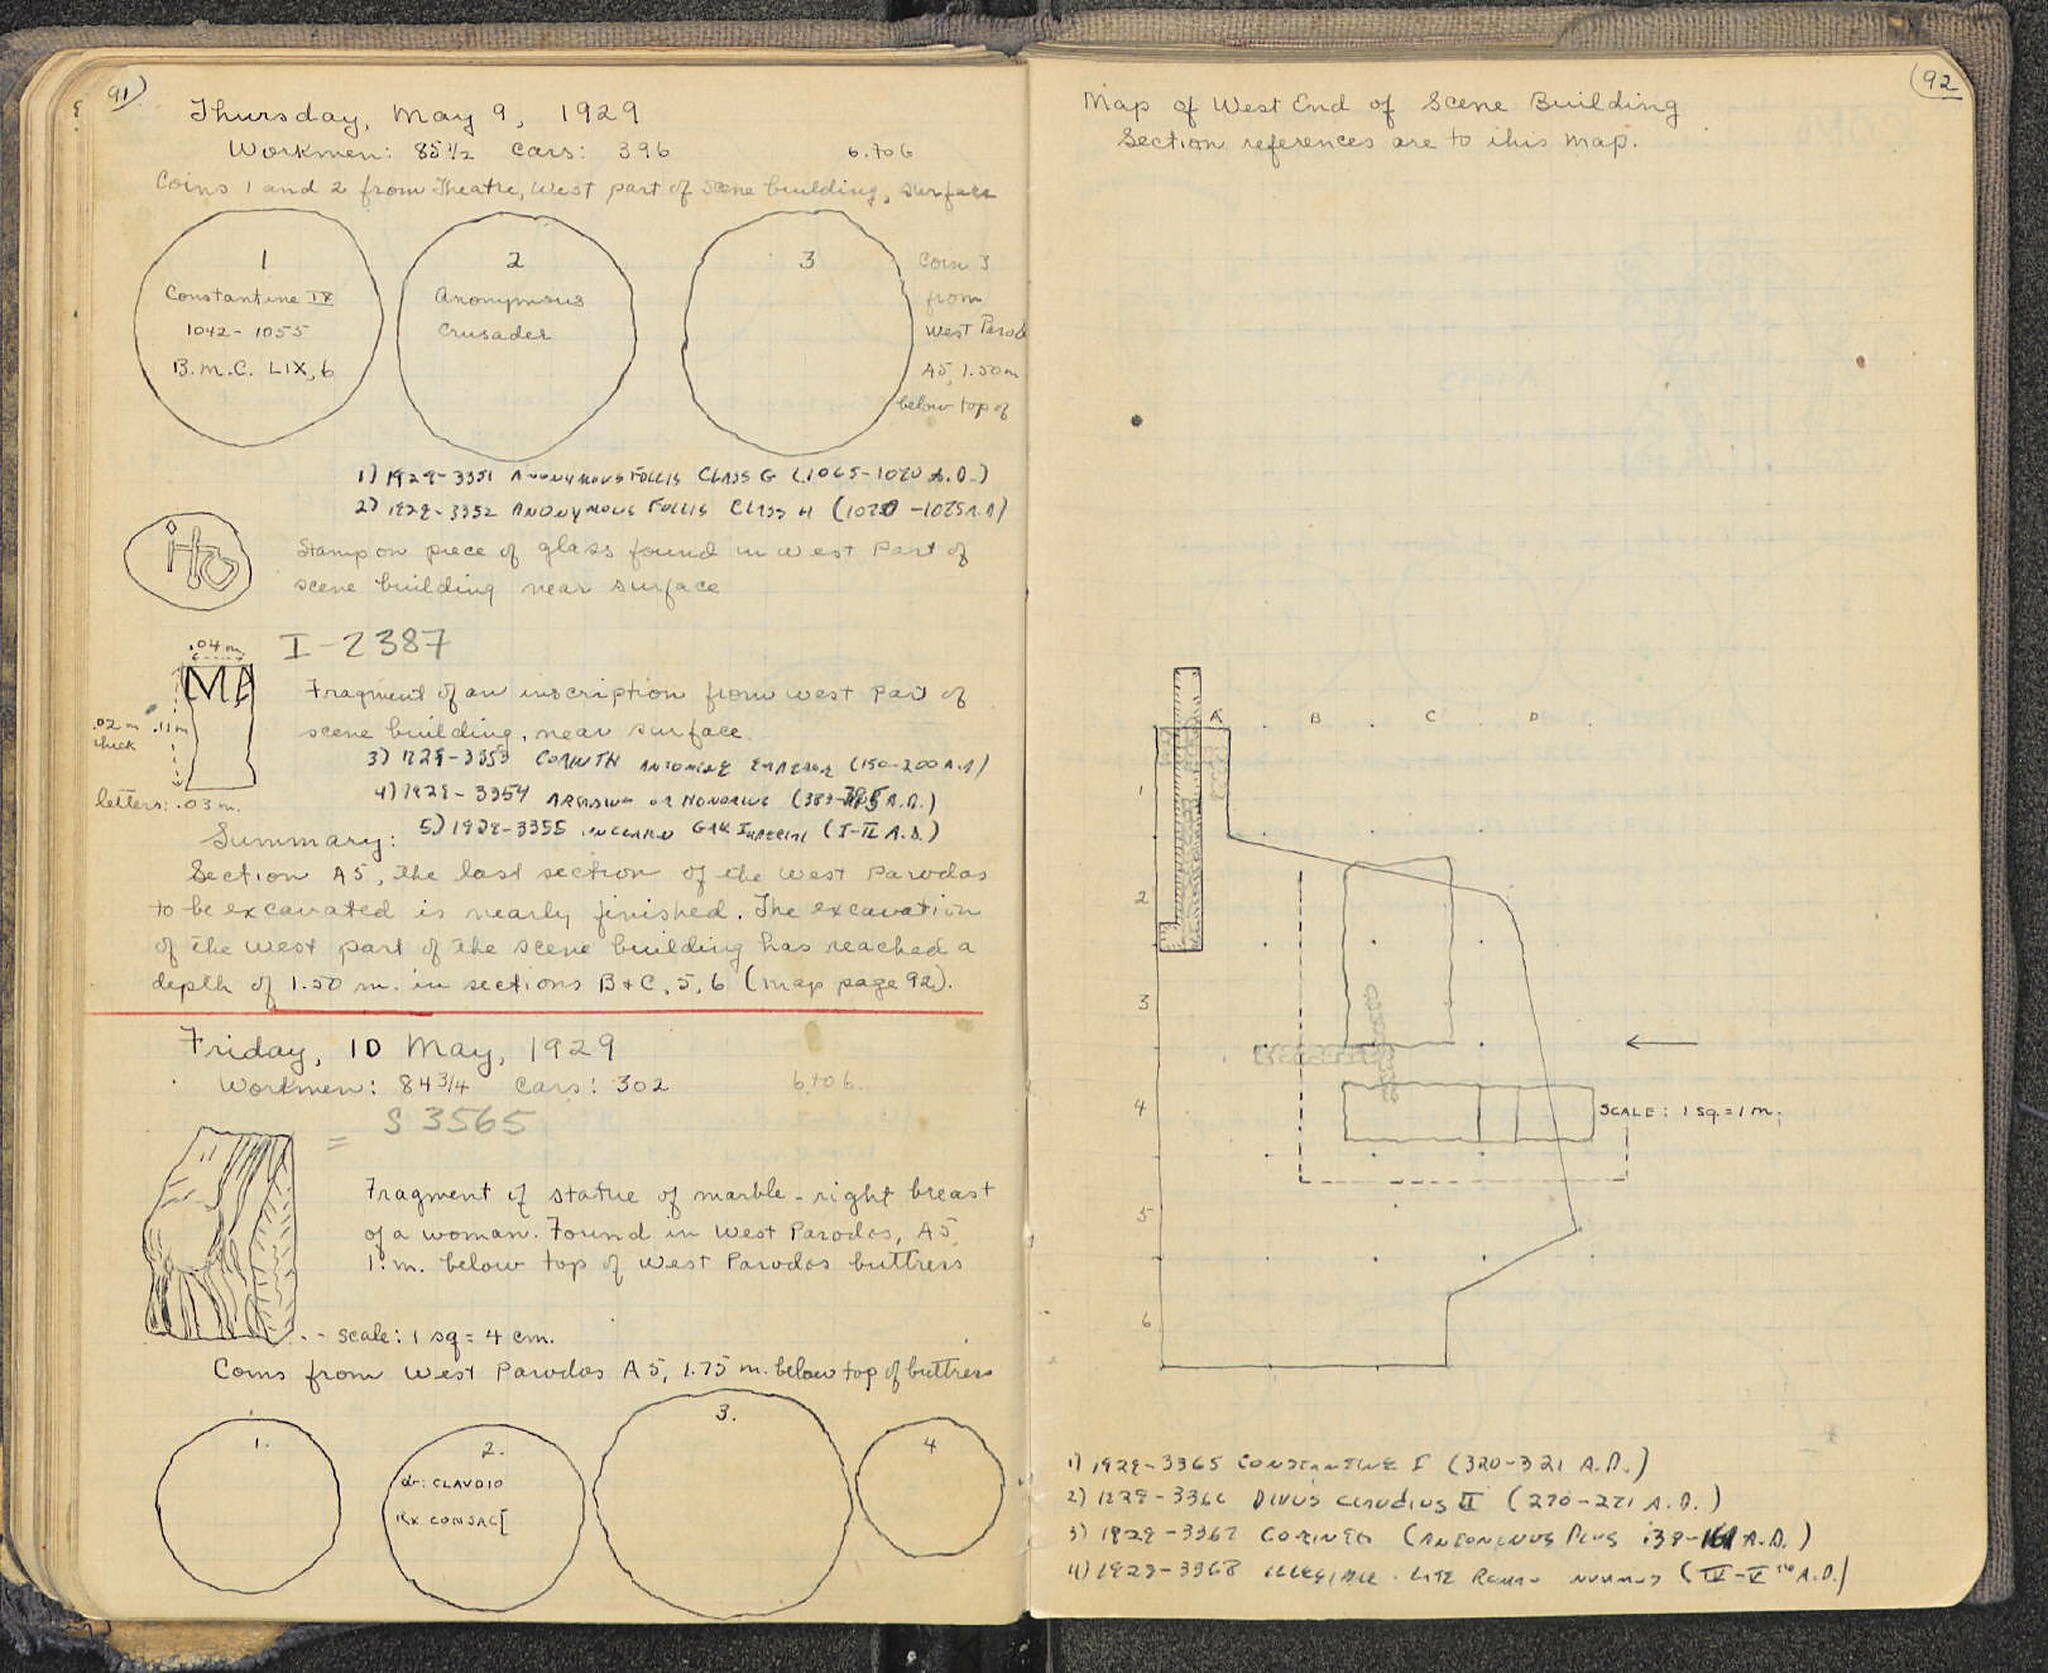 91)
Thursday, May 9, 1929
Workmen: 85 1/2 Cars: 396 6.to6
Coins 1 and 2 from Theatre, West part of scene building, surface
1
Constantine IX
1042 - 1055
B.M.C. LIX, 6
2
Anonymous
Crusader
3
Coin 3
from
West Parod
A5, 1.50 m
below top of
1) 1929-3351 ANONYMOUS FOLLIS CLASS G (1065-1070 A.D.)
2) 1929-3352 ANONYMOUS FOLLIS CLASS H
Stamp on piece of glass found in west part of
scene building near surface
I-2387
.04 m.
MA
.02 m
thick
.11 m
letters: .03 m.
Fragment of an inscription from west part of
scene building, near surface.
3) 1929-3353 CORINTH ANTONINE EMPEROR (150-200 A.D)
4) 1929-3354 ARCADIUS OR HONORIUS A.D.)
5) 1929-3355 IMPERIAL (I-II A.D.)
Summary:
Section A5, the last section of the west Parodos
to be excavated is nearly finished. The excavation
of the west part of the scene building has reached a
depth of 1.50 m. in sections B+C, 5, 6 (map page 92).
Friday, 10 May, 1929
Workmen: 84 3/4 Cars: 302 6 to 6.
= S 3565
Fragment of statue of marble - right breast
of a woman. Found in West Parodos, A5,
1. m. below top of West Parodos buttress
scale: 1 sq = 4 cm.
Coins from West Parodos A5, 1.75 m. below top of buttress
1.
2.
CLAVDIO
Rx CONSAC[
3.
4
(92
Map of West End of Scene Building
Section references are to this map.
A B C D
1
2
3
4
SCALE: 1 sq. = 1 m.
5
6
1) 1929-3365 CONSTANTINE I (320-321 A.D.)
2) 1929-3366 DIVUS CLAUDIUS II (270-271 A.D.)
3) 1929-3367 CORINTH (ANTONINUS PIUS 138-161 A.D.)
4) 1929-3368 ILLEGIBLE LATE ROMAN NUMMUS (IV-V A.D.)